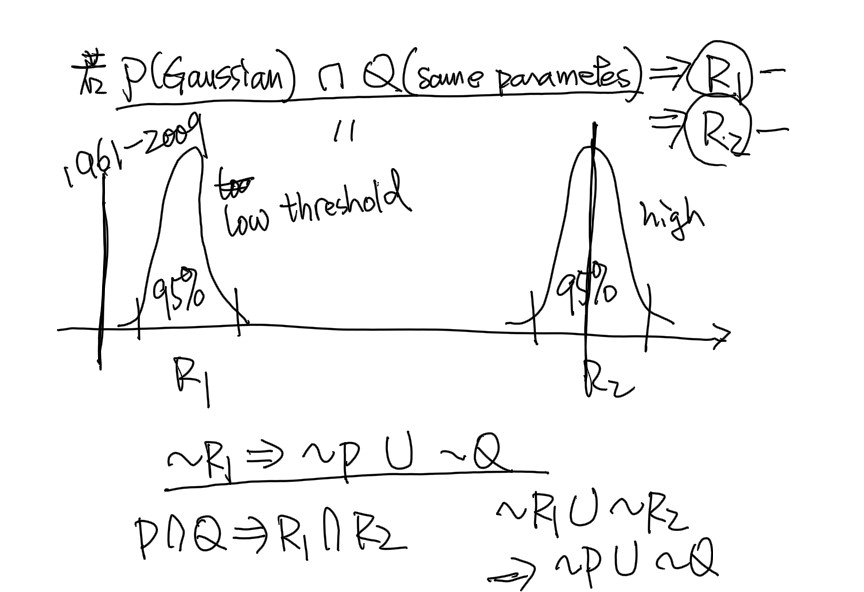 若 P(Gaussian) ∩ Q(same parametes) ⇒ R₁ –
⇒ R₂ –
1961-2009
low threshold
high
95%
95%
R₁
R₂
~R₁ ⇒ ~P ∪ ~Q
P∩Q ⇒ R₁∩R₂
~R₁ ∪ ~R₂
⇒ ~P ∪ ~Q